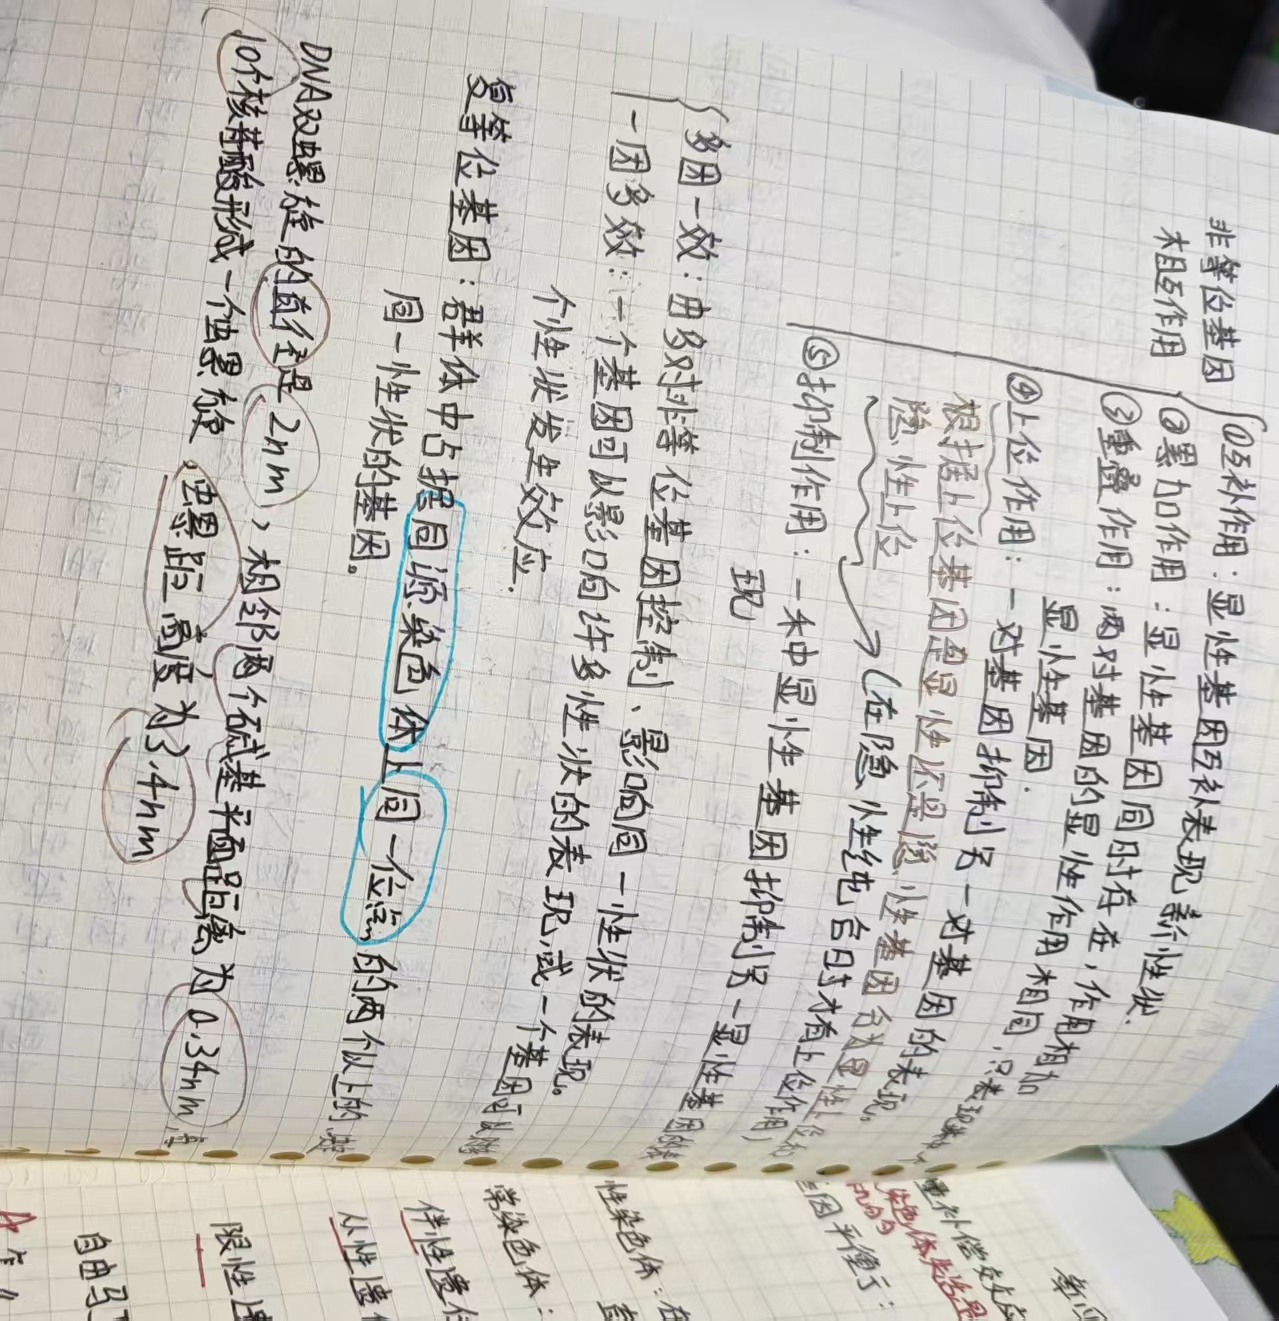 非等位基因
相互作用
①互补作用：显性基因互补表现新性状.
②累加作用：显性基因同时存在，作用相加
③重叠作用：两对基因的显性作用相同，只表现
显性基因.
④上位作用：一对基因抑制另一对基因的表现。
根据上位基因是显性还是隐性基因分为显性上位和
隐性上位
(在隐性纯合时才有上位作用)
⑤抑制作用：一种显性基因抑制另一显性基因的表
现
多因一效：由多对非等位基因控制、影响同一性状的表现。
一因多效：一个基因可以影响许多性状的表现，或一个基因可以
个性状发生效应.
复等位基因：群体中占据同源染色体上同一位点的两个以上的、
同一性状的基因。
DNA双螺旋的直径是2nm，相邻两个碱基平面距离为0.34nm,
10个核苷酸形成一个螺旋，螺距高度为3.4nm
基因平衡了：
性染色体：
常染色体：
伴性遗传
从性遗传
限性遗
自由马